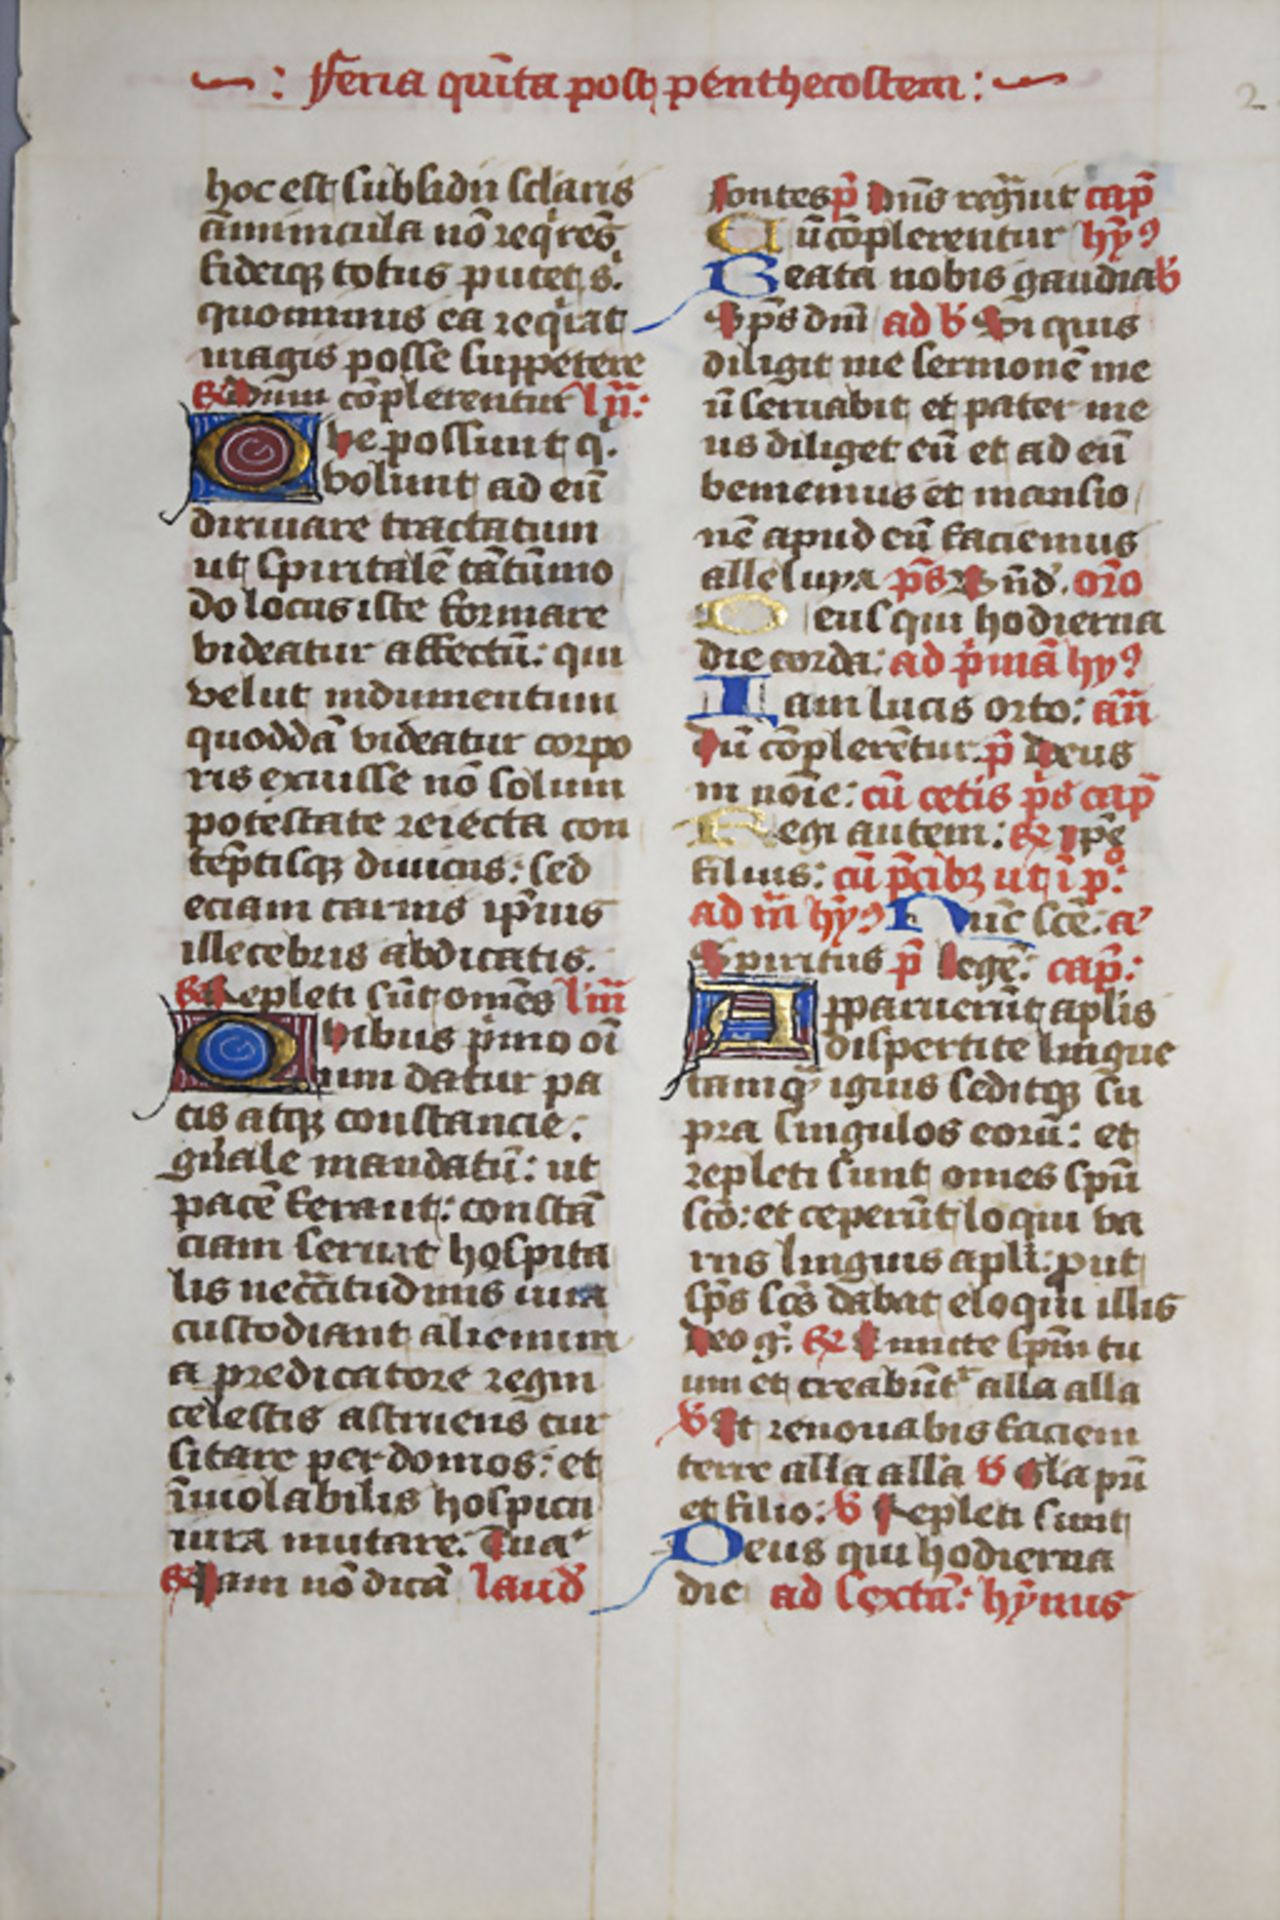 : fferia qui̅ta post penthecostem :
hoc est subsidii sc̅laris
a̅mi̅nicula no̅ req̓res
fideiq; totus putet s.
quominus ea req̓rat
magis posse suppetere
Du̅m co̅plerentur lij̅:
Que possunt q̓.
volunt ad eu̅
diriuare tractatum
ut spiritale̅ ta̅tu̅mo
do locus iste formare
videatur affectu̅: qui
velut indumentum
quodda̅ videatur corpo
ris exuisse no̅ solum
potestate reiecta con
te̅ptisq; diuiciis: sed
eciam carnis ip̅ius
illecebris abdicatis.
Repleti su̅t om̅es
Quibus p̓mo oi̅
um datur pa
cis atq; constancie.
gn̅ale mandatu̅: ut
pace̅ ferant: consta̅
ciam seruit hospita
lis necc̅itudinis iura
custodiant alienum
a predicatore regni
celestis astruens cur
sitare per domos: et
i̅uiolabilis hospicii
iura mutare. Tua̓
Iam no̅ dica̅ laud̓
fontes p̅ Dn̅s reg̅uit cap̅
Cu̅ co̅plerentur hy̅9
Beata nobis gaudia v̓
Sp̅s dn̅i ad b̓ Si quis
diligit me sermone̅ me
u̅ seruabit et pater me
us diliget eu̅ et ad eu̅
veniemus et mansio
ne̅ apud eu̅ faciemus
alleluya p̅s Bn̅d̓. or̅o
Deus qui hodierna
die corda: ad p̓ma̅ hy9
Iam lucis orto: an̅
Du̅ co̅plere̅tur p̅ Deus
in no̅ie: cu̅ cetis p̅s cap̅
Regi autem: ip̅e
filius: cu̅ p̅cib; ut i̅ p̓.
ad iii̅ hy9 Nu̅c sc̅e. a̓
Spiritus p̅ Lege̅: cap̅:
Apparueru̅t ap̅lis
dispertite lingue
tamq̅ ignis seditq; su
pra singulos eoru̅: et
repleti sunt om̅es sp̅u
sc̅o: et ceperu̅t loqui va
riis linguis ap̅li: prut
sp̅s sc̅s dabat eloqui illis
Deo g̓. Emitte sp̅m tu
um et creabu̅t᷑ alla alla
v̓ Et renouabis faciem
terre alla alla v̓ Gl̅a pr̅i
et filio: v̓ Repleti sunt
Deus qui hodierna
die ad sexta̅: hy̅nus